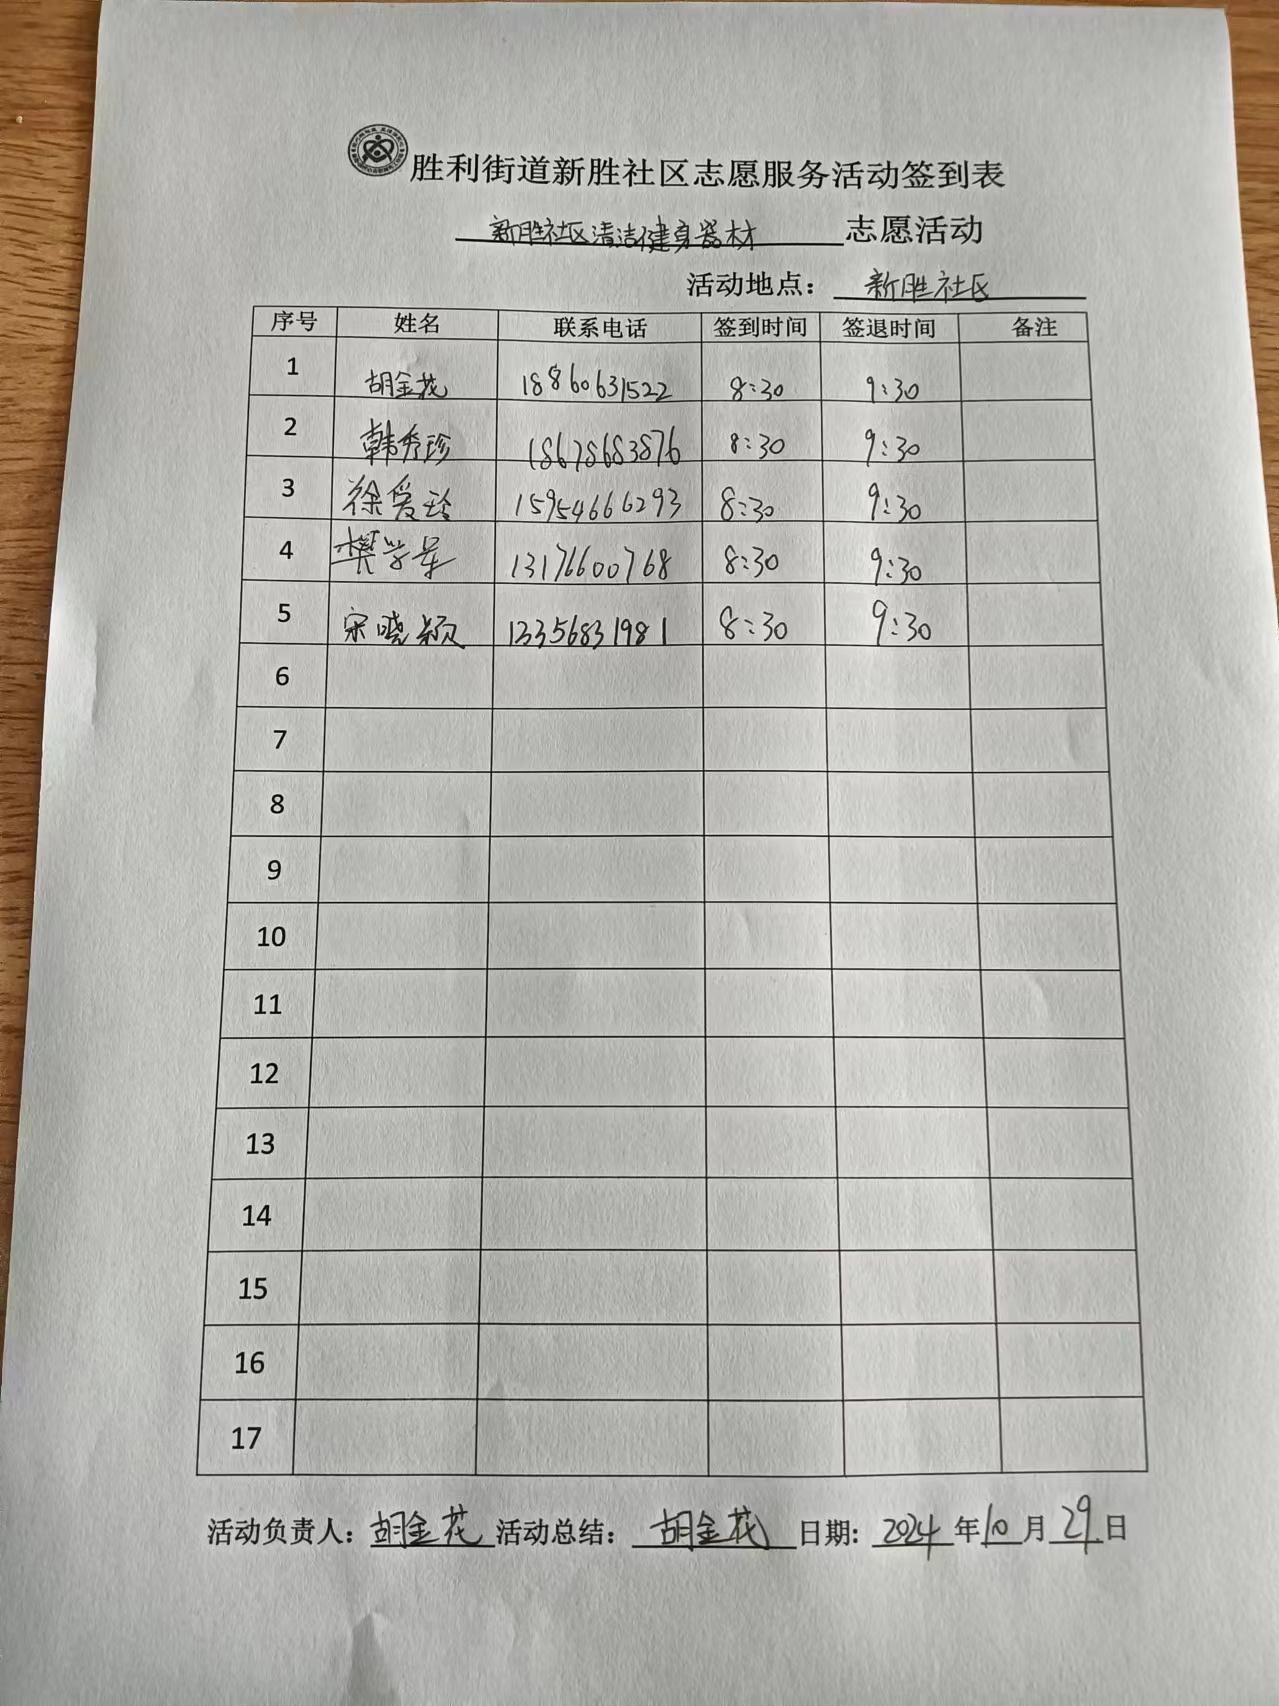 胜利街道新胜社区志愿服务活动签到表
新胜社区清洁健身器材 志愿活动
活动地点：新胜社区
序号 姓名 联系电话 签到时间 签退时间 备注
1 胡金花 18860631522 8:30 9:30
2 韩秀珍 18678683876 8:30 9:30
3 徐爱玲 15954666293 8:30 9:30
4 樊学军 13176600768 8:30 9:30
5 宋晓颖 13356831981 8:30 9:30
6
7
8
9
10
11
12
13
14
15
16
17
活动负责人：胡金花 活动总结：胡金花 日期：2024年10月29日